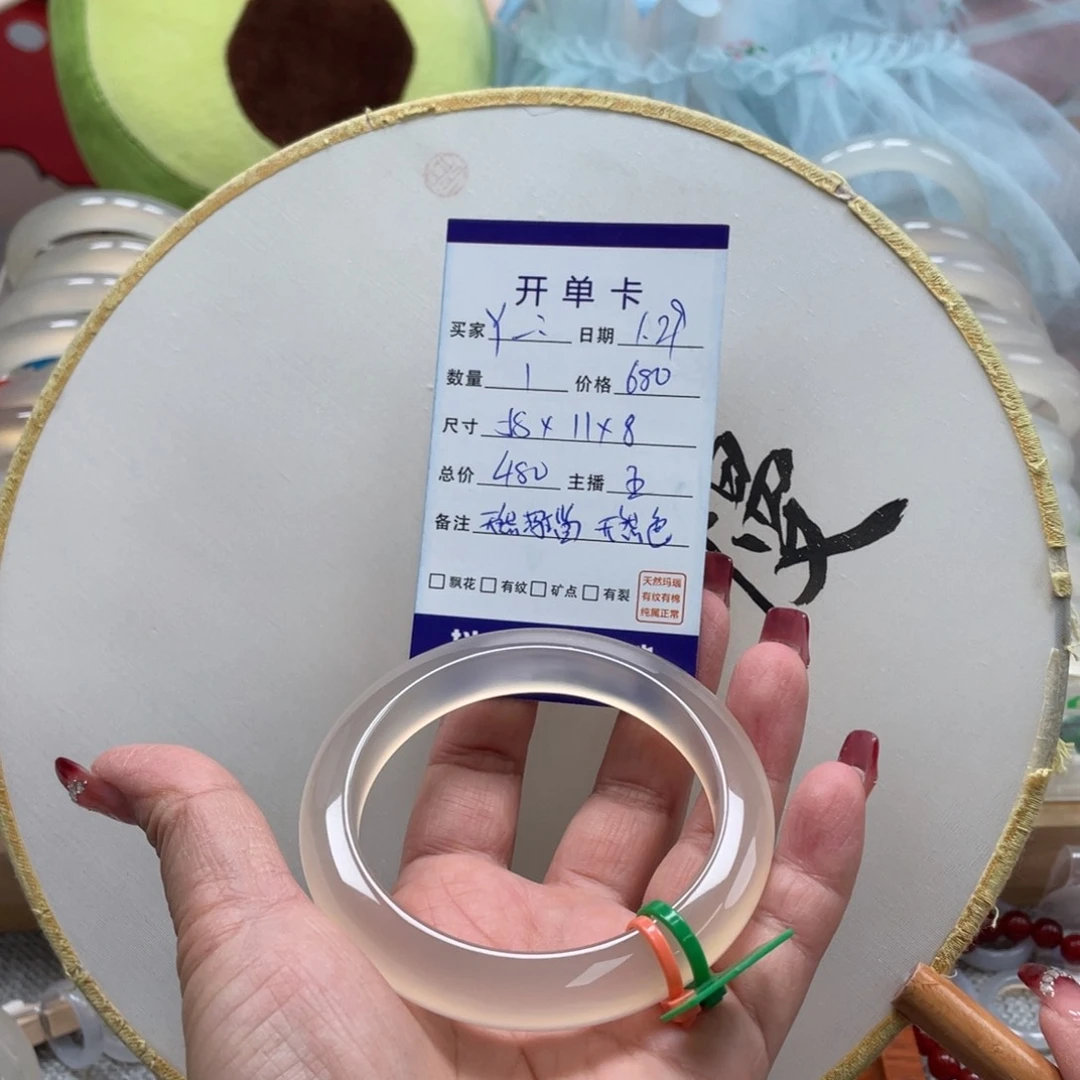 开单卡
买家 丫二 日期 1.29
数量 1 价格 680
尺寸 58×11×8
总价 480 主播 玉
备注 天然玛瑙 天然色
□飘花□有纹□矿点□有裂
天然玛瑙
有纹有棉
纯属正常